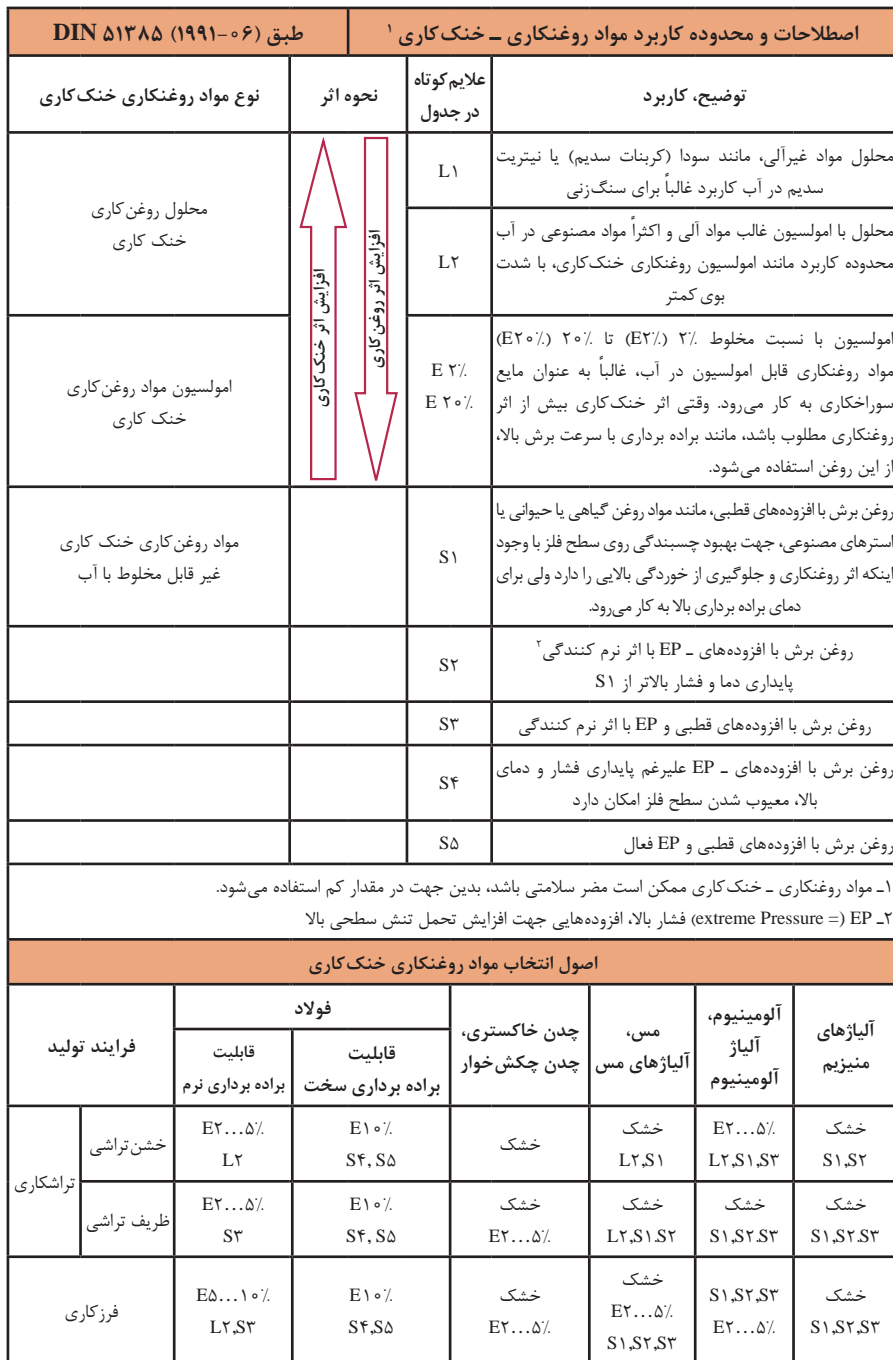 اصطلاحات و محدوده کاربرد مواد روغنکاری ــ خنک‌کاری ۱
طبق (۰۶-۱۹۹۱) DIN ۵۱۳۸۵
توضیح، کاربرد
علایم‌کوتاه
در جدول
نحوه اثر
نوع مواد روغنکاری خنک‌کاری
محلول مواد غیرآلی، مانند سودا (کربنات سدیم) یا نیتریت
سدیم در آب کاربرد غالباً برای سنگ‌زنی
L۱
افزایش اثر روغن‌کاری
افزایش اثر خنک‌کاری
محلول روغن‌کاری
خنک کاری
محلول با امولسیون غالب مواد آلی و اکثراً مواد مصنوعی در آب
محدوده کاربرد مانند امولسیون روغنکاری خنک‌کاری، با شدت
بوی کمتر
L۲
امولسیون با نسبت مخلوط ۲٪ (E۲٪) تا ۲۰٪ (E۲۰٪)
مواد روغنکاری قابل امولسیون در آب، غالباً به عنوان مایع
سوراخکاری به کار می‌رود. وقتی اثر خنک‌کاری بیش از اثر
روغنکاری مطلوب باشد، مانند براده برداری با سرعت برش بالا،
از این روغن استفاده می‌شود.
E ۲٪
E ۲۰٪
امولسیون مواد روغن‌کاری
خنک کاری
روغن برش با افزوده‌های قطبی، مانند مواد روغن گیاهی یا حیوانی یا
استرهای مصنوعی، جهت بهبود چسبندگی روی سطح فلز با وجود
اینکه اثر روغنکاری و جلوگیری از خوردگی بالایی را دارد ولی برای
دمای براده برداری بالا به کار می‌رود.
S۱
مواد روغن‌کاری خنک کاری
غیر قابل مخلوط با آب
روغن برش با افزوده‌های ــ EP با اثر نرم کنندگی۲
پایداری دما و فشار بالاتر از S۱
S۲
روغن برش با افزوده‌های قطبی و EP با اثر نرم کنندگی
S۳
روغن برش با افزوده‌های ــ EP علیرغم پایداری فشار و دمای
بالا، معیوب شدن سطح فلز امکان دارد
S۴
روغن برش با افزوده‌های قطبی و EP فعال
S۵
۱ــ مواد روغنکاری ــ خنک‌کاری ممکن است مضر سلامتی باشد، بدین جهت در مقدار کم استفاده می‌شود.
۲ــ EP (= extreme Pressure) فشار بالا، افزوده‌هایی جهت افزایش تحمل تنش سطحی بالا
اصول انتخاب مواد روغنکاری خنک‌کاری
آلیاژهای
منیزیم
آلومینیوم،
آلیاژ
آلومینیوم
مس،
آلیاژهای مس
چدن خاکستری،
چدن چکش‌خوار
فولاد
قابلیت
براده برداری سخت
قابلیت
براده برداری نرم
فرایند تولید
خشک
S۱,S۲
E۲...۵٪
L۲,S۱,S۳
خشک
L۲,S۱
خشک
E۱۰٪
S۴, S۵
E۲...۵٪
L۲
خشن‌تراشی
تراشکاری
خشک
S۱,S۲.S۳
خشک
S۱,S۲.S۳
خشک
L۲,S۱.S۲
خشک
E۲...۵٪
E۱۰٪
S۴, S۵
E۲...۵٪
S۳
ظریف تراشی
خشک
S۱,S۲,S۳
S۱,S۲,S۳
E۲...۵٪
خشک
E۲...۵٪
S۱,S۲,S۳
خشک
E۲...۵٪
E۱۰٪
S۴,S۵
E۵...۱۰٪
L۲,S۳
فرزکاری